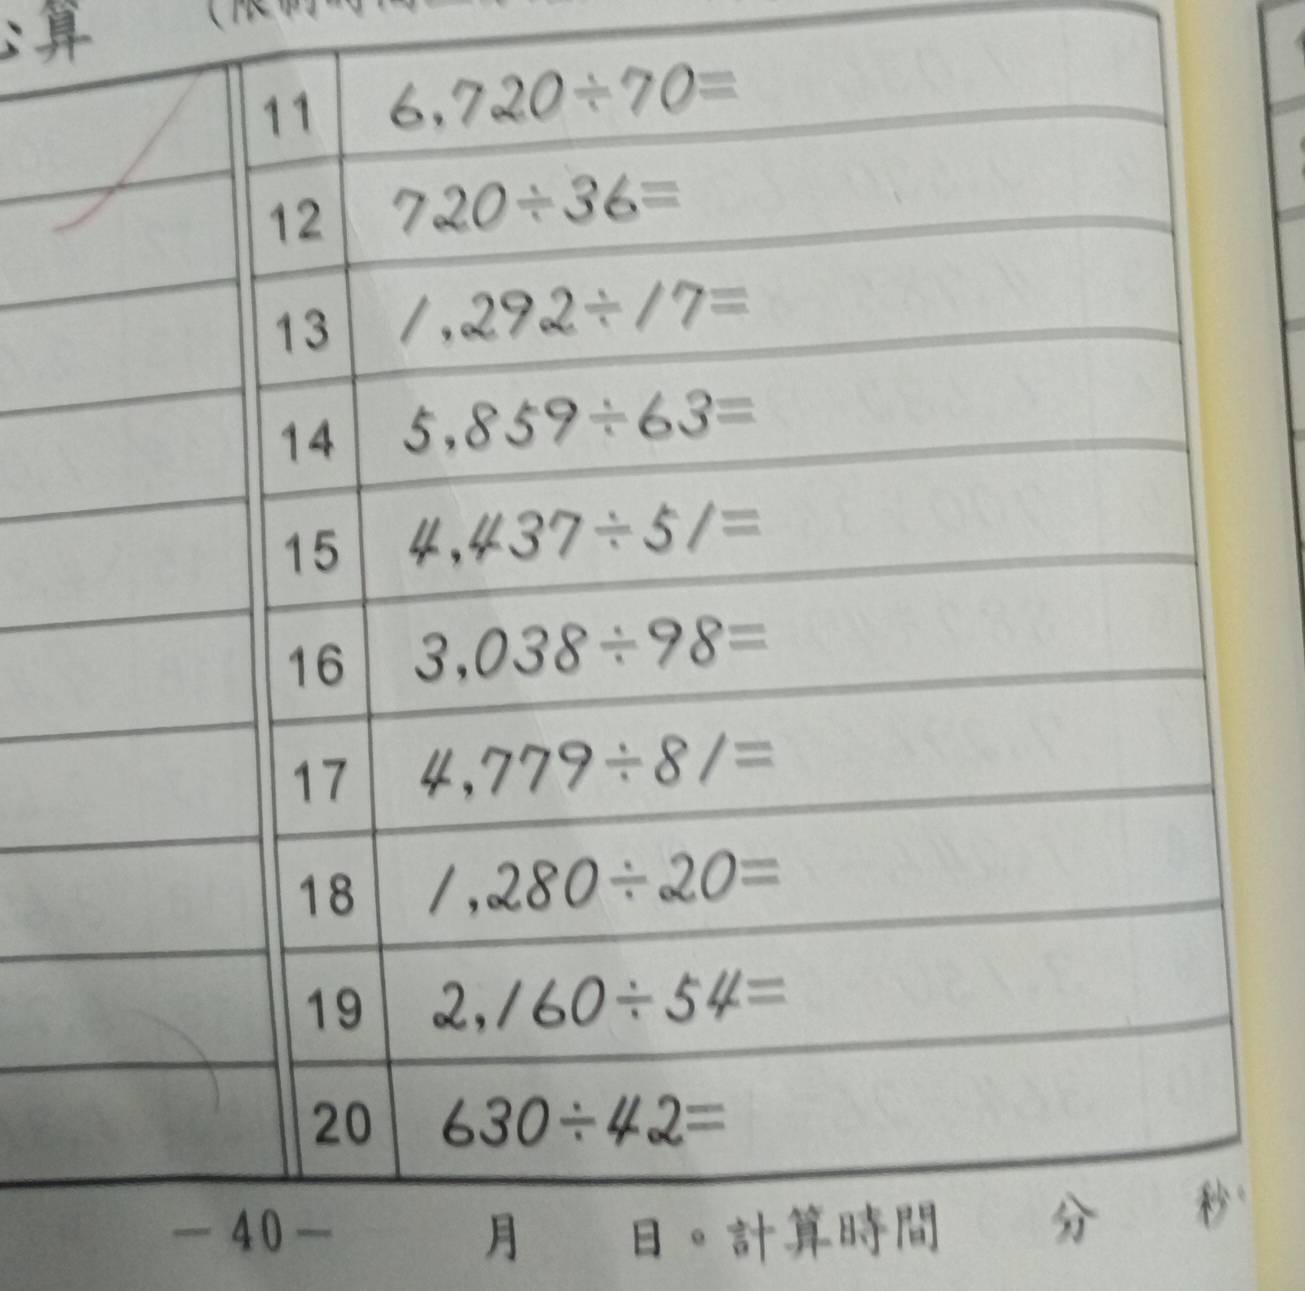 算
11 6,720÷70=
12 720÷36=
13 1,292÷17=
14 5,859÷63=
15 4,437÷51=
16 3,038÷98=
17 4,779÷81=
18 1,280÷20=
19 2,160÷54=
20 630÷42=
－40－ 月 日。計算時間 分 秒。